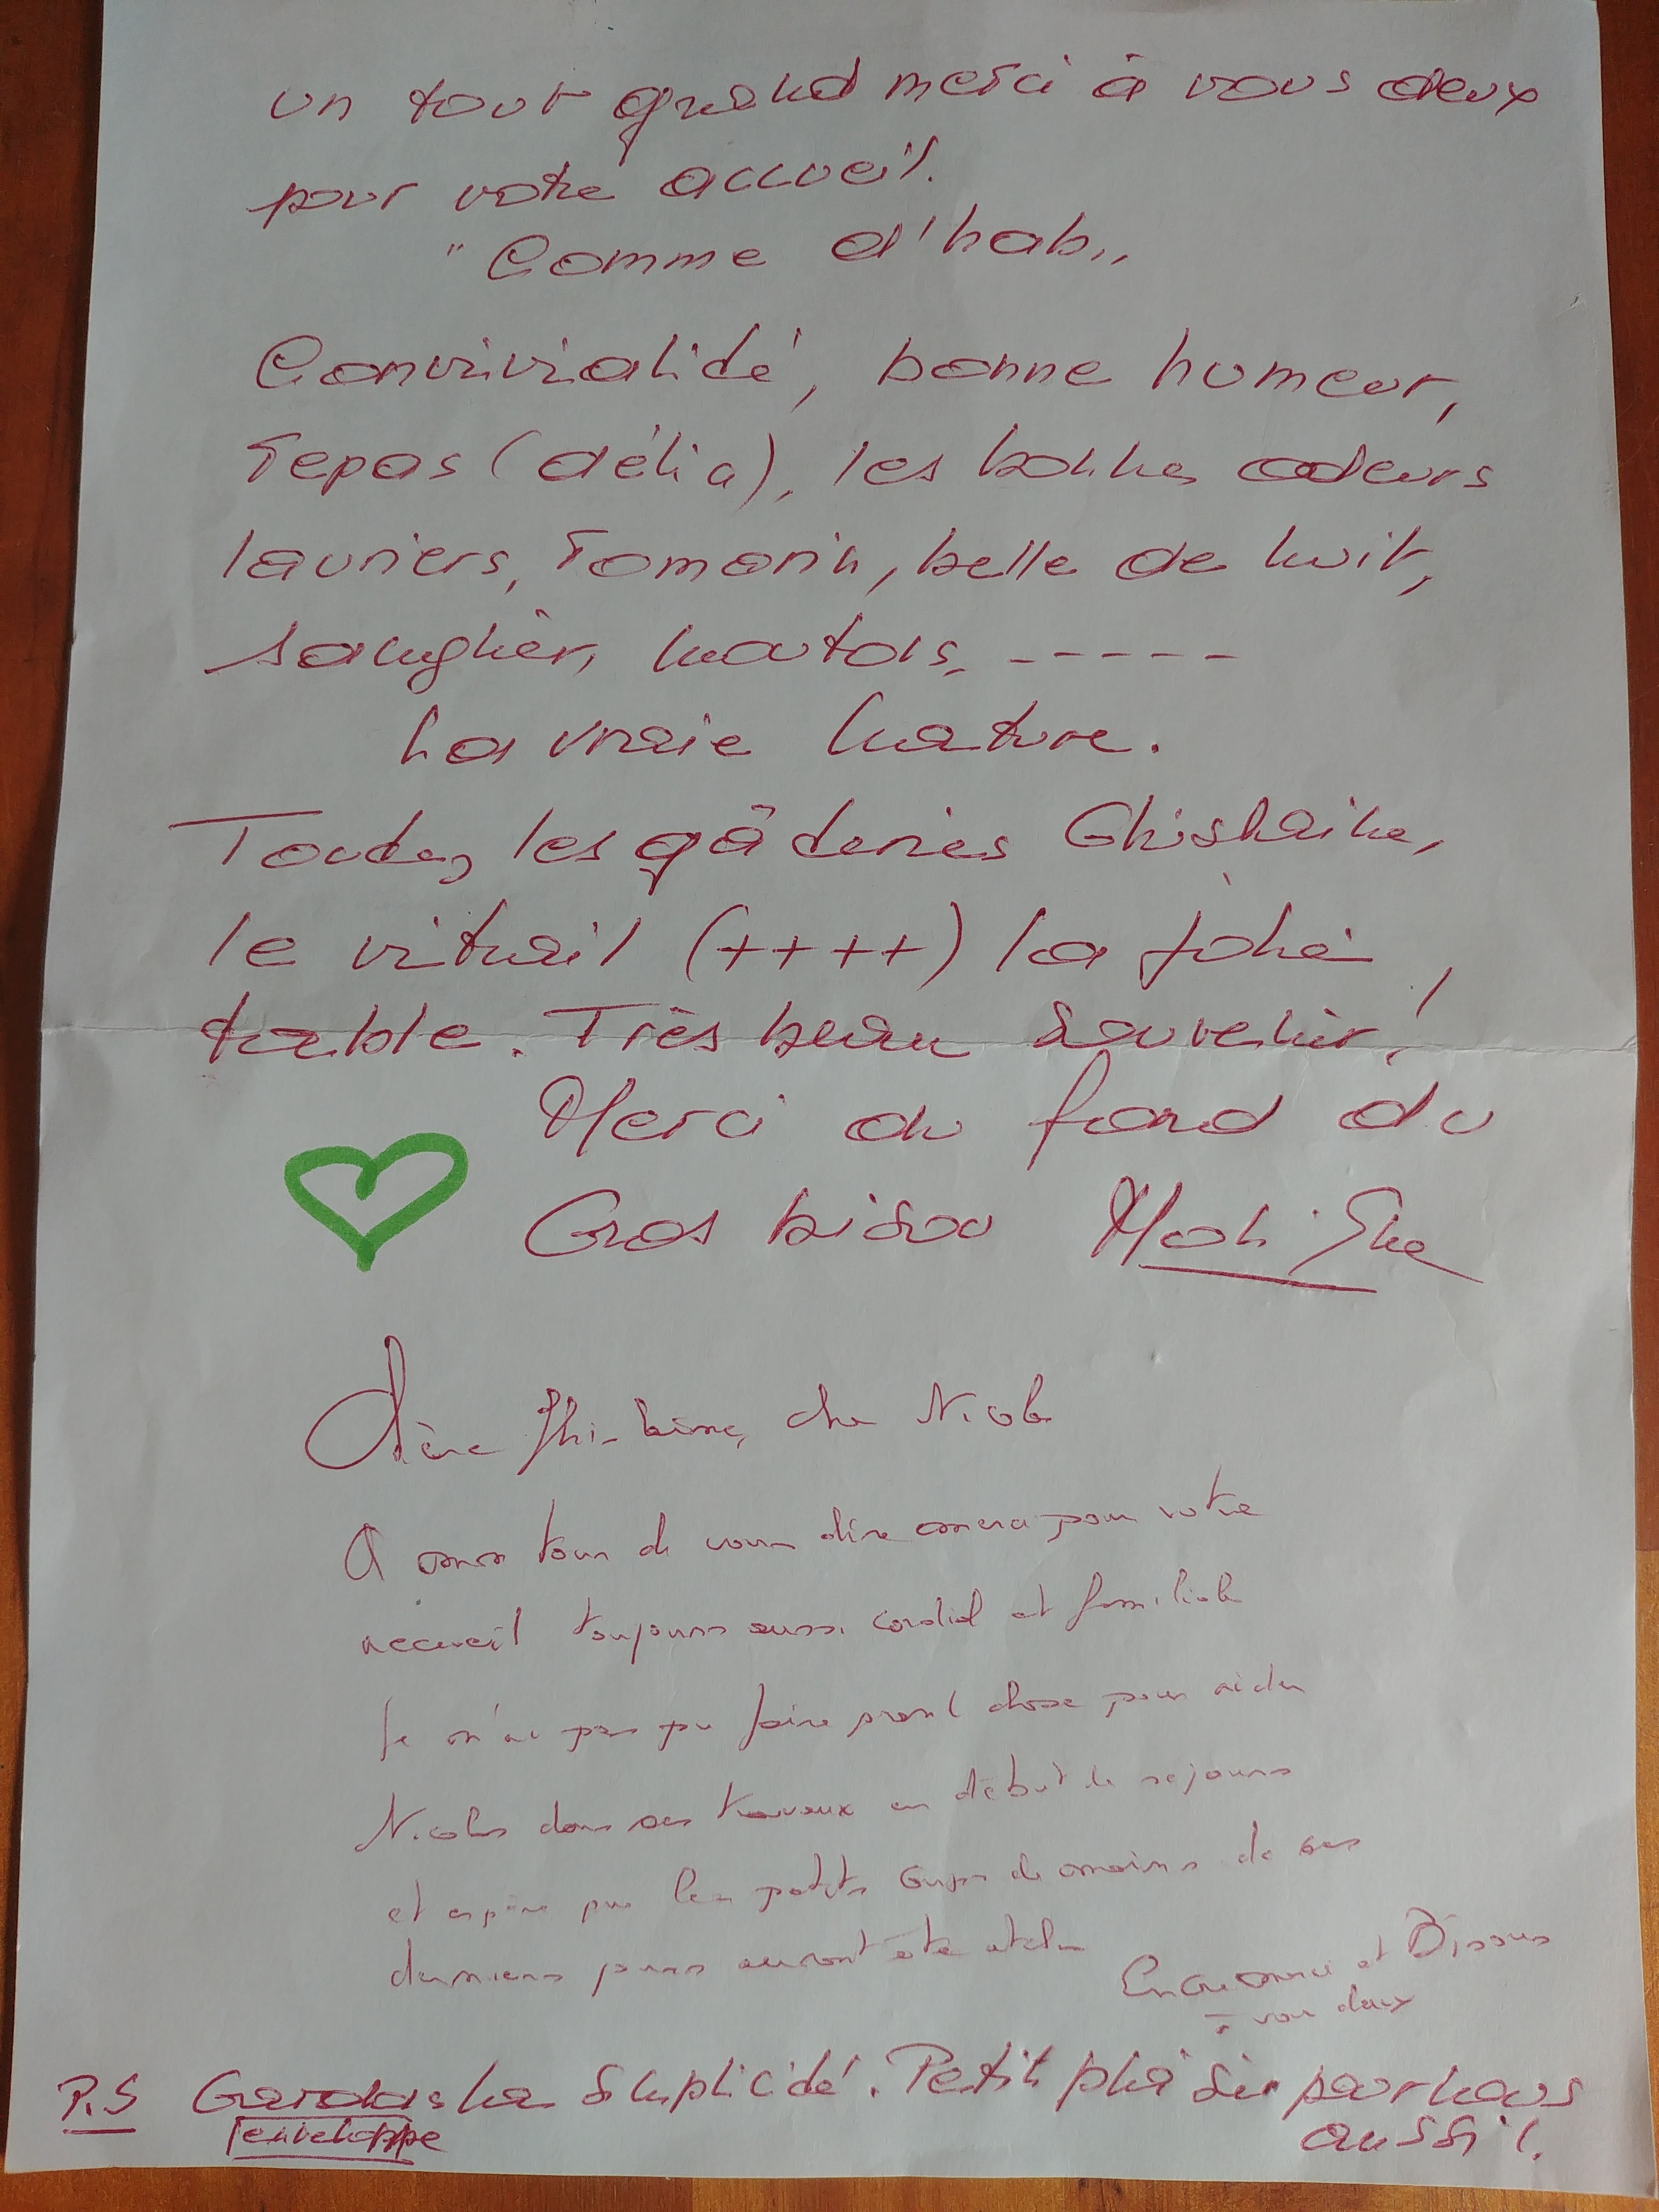 un tout grand merci à vous deux
pour votre accueil.
"Comme d'hab„
Convivialité, bonne humeur,
repas (délia), les bonnes odeurs
lauriers, romarin, belle de nuit,
sanglier, matous, -----
La vraie nature.
Toutes les gâteries Ghislaine,
le vitrail (++++) la jolie
table. Très beau souvenir!
Merci du fond du
Gros bisou
Chère Ghislaine, cher Nicolas
A mon tour de vous dire merci pour votre
accueil toujours aussi cordial et familiale
Je n'ai pas pu faire grand chose pour aider
Nicolas dans ses travaux en début de séjours
et espère que les petits coups de mains de ces
derniers jours auront été utiles
Encore merci et Bisous
à vous deux
P.S Gardons la simplicité. Petit plaisir pour nous
l'enveloppe
aussi!